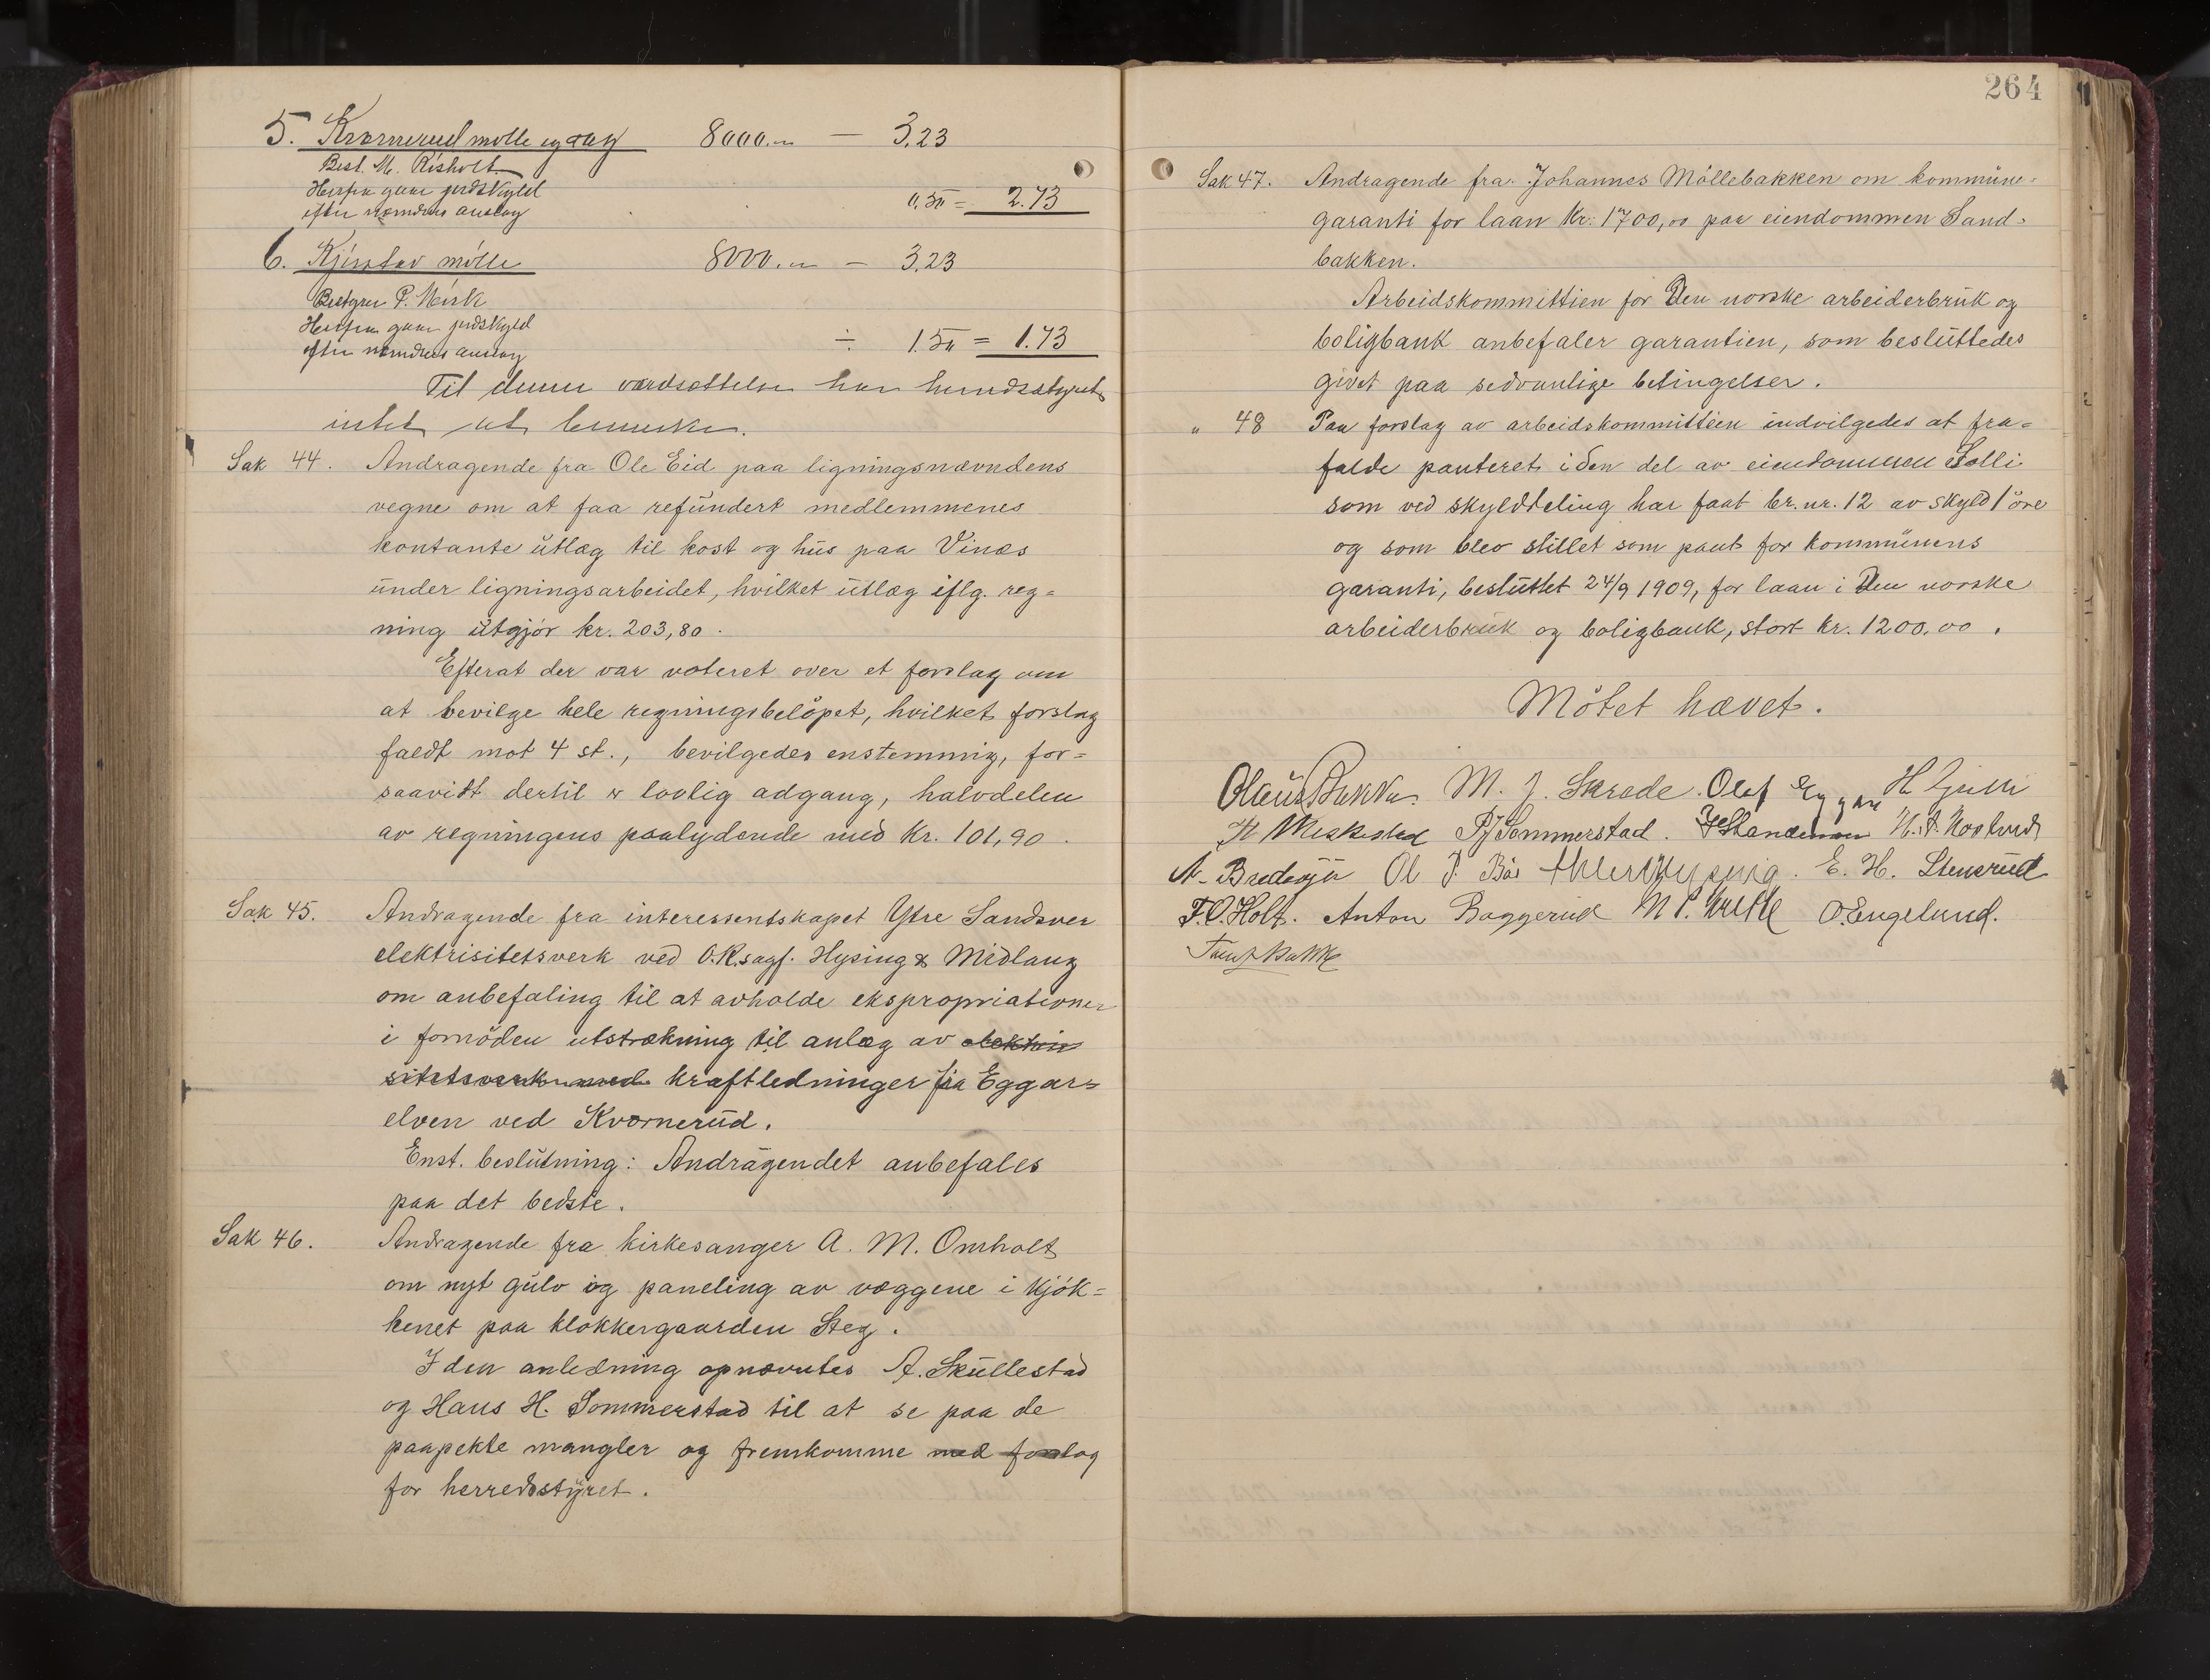 5. Kværnerud mølle og sag 8000.00 — 3.23
Best. M. Risholt.
Herfra gaar jordskyld
efter nemndens anslag 0.50 = 2.73
6. mølle 8000.00 — 3.23
P.
Herfra gaar jordskyld
efter nemndens anslag ÷ 1.50 = 1.73
Til denne værdsættelse har herredsstyret
intet at bemerke.
Sak 44. Andragende fra Ole Eid paa ligningsnævndens
vegne om at faa refundert medlemmenes
kontante utlæg til kost og hus paa Vinæs
under ligningsarbeidet, hvilket utlæg iflg. reg=
ning utgjör kr. 203,80.
Efterat der var voteret over et forslag om
at bevilge hele regningsbelöpet, hvilket forslag
faldt mot 4 st., bevilgedes enstemmig, for=
saavidt dertil er lovlig adgang, halvdelen
av regningens paalydende med Kr. 101,90.
Sak 45. Andragende fra interessentskapet Ytre Sandsver
elektrisitetsverk ved O.R.sagf. Hysing & Midlang
om anbefaling til at avholde ekspropriationer
i fornöden utstrækning til anlæg av elektri
sitetsverk med kraftledninger fra Eggar=
elven ved Kværnerud.
Enst. beslutning: Andragendet anbefales
paa det bedste.
Sak 46. Andragende fra kirkesanger A. M. Omholt
om nyt gulv og paneling av væggene i kjök=
kenet paa klokkergaarden Steg.
I den anledning opnævntes A. Skullestad
og Hans H. Sommerstad til at se paa de
paapekte mangler og fremkomme med forslag
for herredsstyret.
264
Sak 47. Andragende fra Johannes Möllebakken om kommune=
garanti for laan Kr. 1700,00 paa eiendommen Sand=
bakken.
Arbeidskommittien for Den norske arbeiderbruk og
boligbank anbefaler garantien, som besluttedes
givet paa sedvanlige betingelser.
" 48 Paa forslag av arbeidskommitteen indvilgedes at fra=
falde panteret i den del av eiendommen Solli
som ved skylddeling har faat br. nr. 12 av skyld 1 öre
og som blev stillet som pant for kommunens
garanti, besluttet 24/9 1909, for laan i Den norske
arbeiderbruk og boligbank, stort kr. 1200.00.
Mötet hævet.
Olaus Bakke. M. J. Skrede. Olaf Eggar H
Sommerstad.
Ol J. Bös E. H. Stensrud
F.O.Holt. Anton Baggerud O.Engelund.